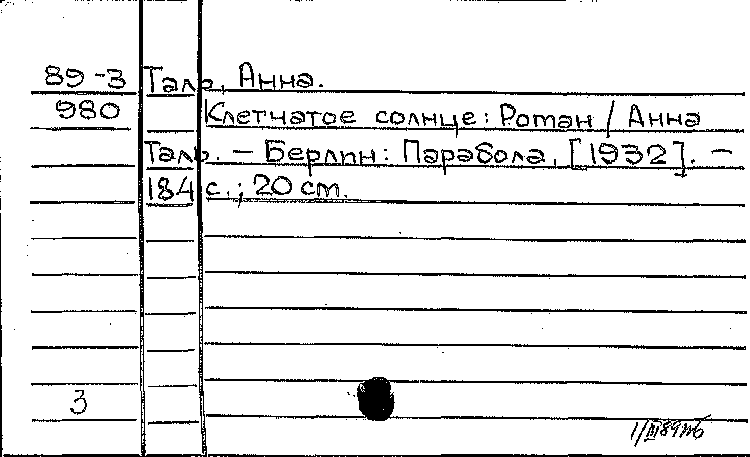 89-3 Таль, Анна.
980 Клетчатое солнце: Роман / Анна
Таль. – Берлин: Парабола, [1932]. –
184 с.; 20 cm.
3